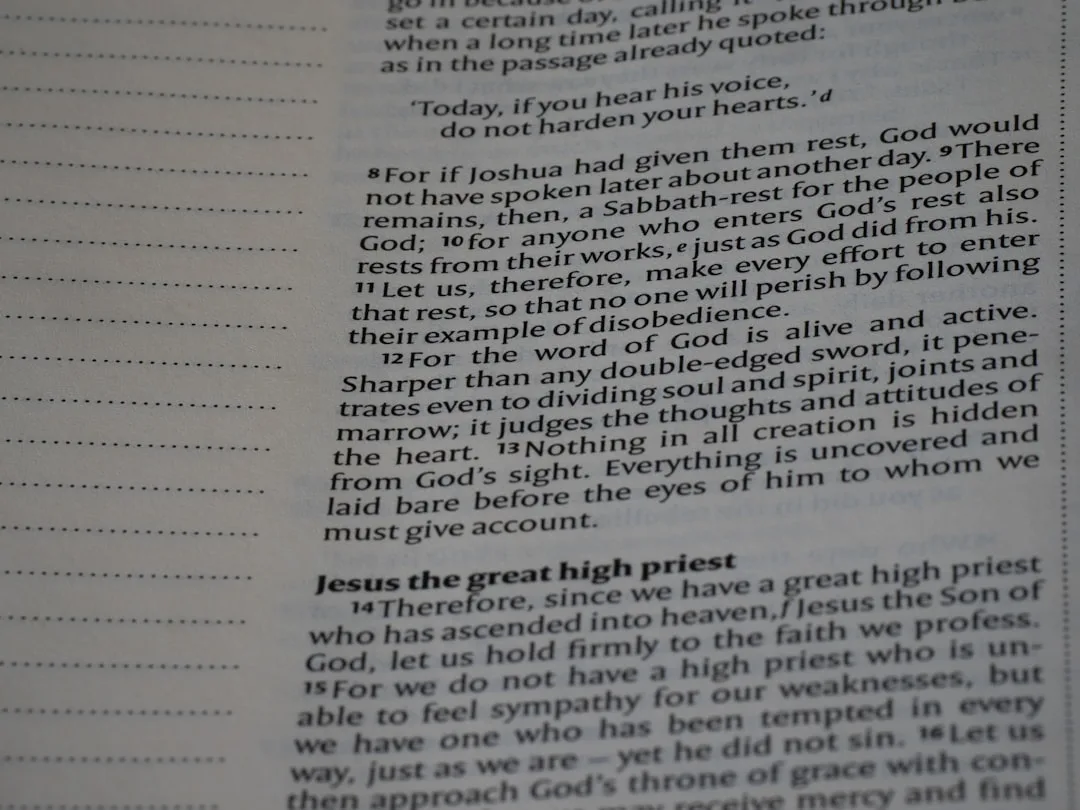 go in because of
set a certain day, calling it
when a long time later he spoke through
as in the passage already quoted:
‘Today, if you hear his voice,
do not harden your hearts.’ d
8 For if Joshua had given them rest, God would
not have spoken later about another day. 9 There
remains, then, a Sabbath-rest for the people of
God; 10 for anyone who enters God’s rest also
rests from their works, e just as God did from his.
11 Let us, therefore, make every effort to enter
that rest, so that no one will perish by following
their example of disobedience.
12 For the word of God is alive and active.
Sharper than any double-edged sword, it pene-
trates even to dividing soul and spirit, joints and
marrow; it judges the thoughts and attitudes of
the heart. 13 Nothing in all creation is hidden
from God’s sight. Everything is uncovered and
laid bare before the eyes of him to whom we
must give account.
Jesus the great high priest
14 Therefore, since we have a great high priest
who has ascended into heaven, f Jesus the Son of
God, let us hold firmly to the faith we profess.
15 For we do not have a high priest who is un-
able to feel sympathy for our weaknesses, but
we have one who has been tempted in every
way, just as we are – yet he did not sin. 16 Let us
then approach God’s throne of grace with con-
may receive mercy and find